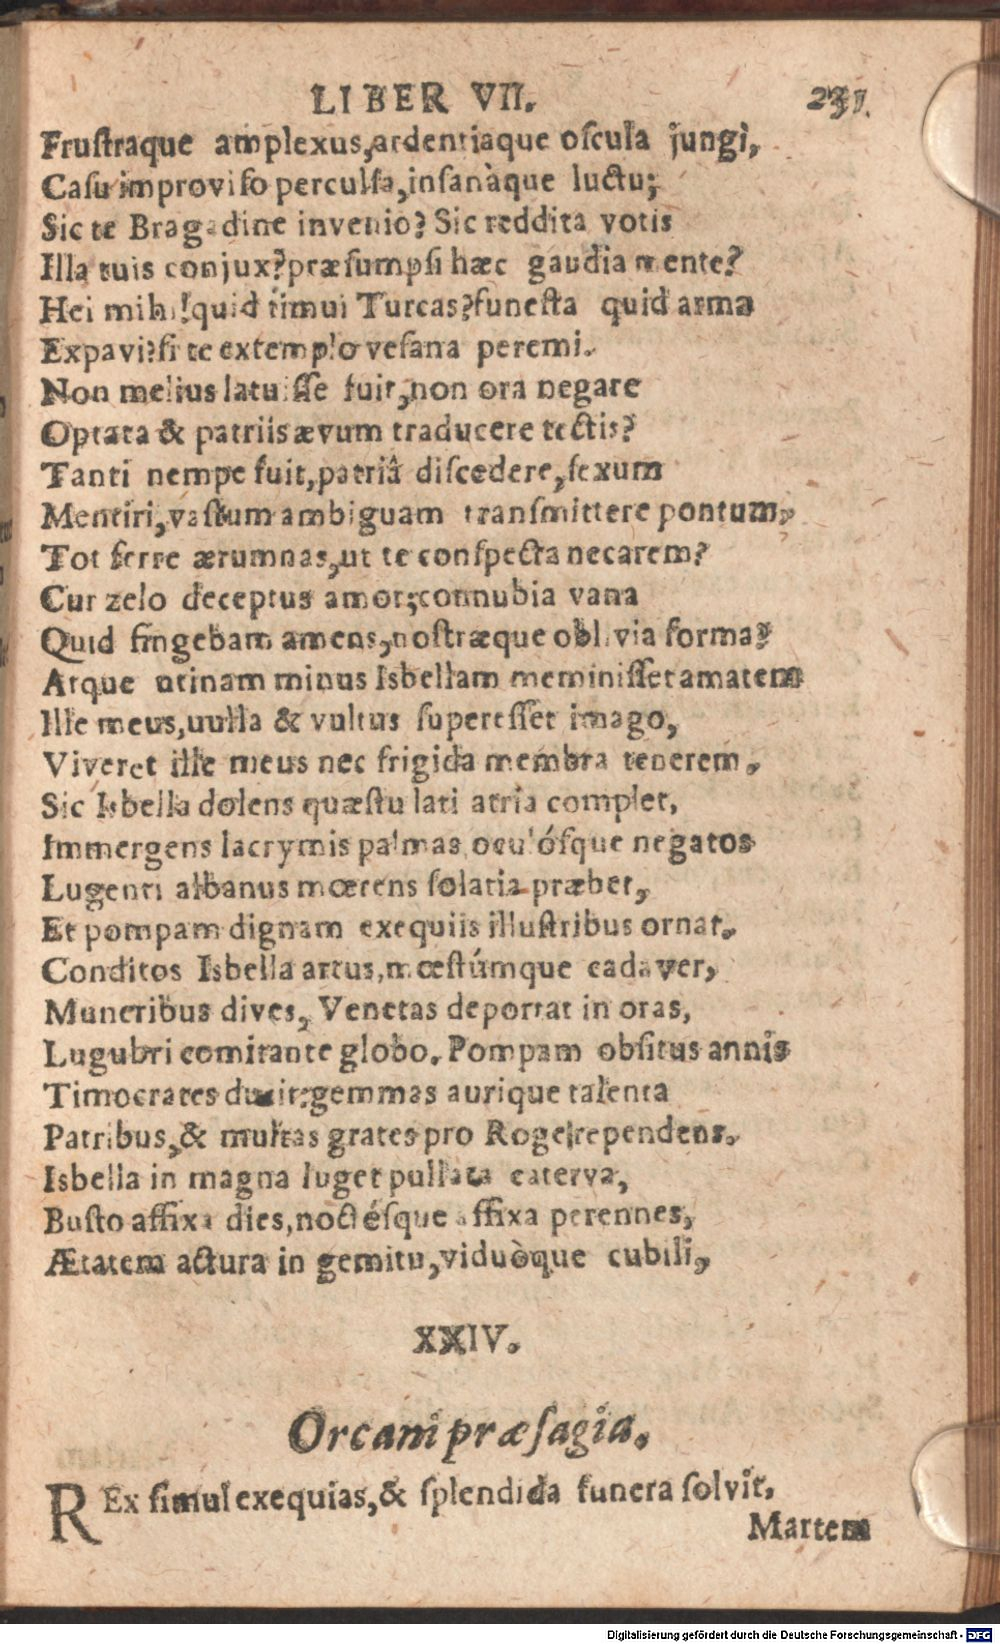 LIBER VII. 231.
Fruſtraque amplexus, ardentiaque oſcula jungi,
Caſu improviſo perculſa, inſanàque luctu;
Sic te Bragadine invenio? Sic reddita votis
Illa tuis conjux? præſumpſi hæc gaudia mente?
Hei mihi! quid timui Turcas? funeſta quid arma
Expavi? ſi te extemplo veſana peremi.
Non melius latuiſſe fuit, non ora negare
Optata & patriis ævum traducere tectis?
Tanti nempe fuit, patriâ diſcedere, ſexum
Mentiri, vaſtum ambiguam tranſmittere pontum,
Tot ferre ærumnas, ut te conſpecta necarem?
Cur zelo deceptus amor; connubia vana
Quid fingebam amens, noſtræque oblivia forma?
Atque utinam minus Isbellam meminiſſet amatem
Ille meus, uulla & vultus ſupereſſet imago,
Viveret ille meus nec frigida membra tenerem.
Sic Isbella dolens quæſtu lati atria complet,
Immergens lacrymis palmas oculóſque negatos
Lugenti albanus mœrens ſolatia præbet,
Et pompam dignam exequiis illuſtribus ornat.
Conditos Isbella artus, mœſtúmque cadaver,
Muneribus dives, Venetas deportat in oras,
Lugubri comitante globo. Pompam obſitus annis
Timocrates ducit; gemmas aurique talenta
Patribus, & multas grates pro Roge rependens.
Isbella in magna luget pullata caterva,
Buſto affixa dies, noctéſque affixa perennes,
Ætatem actura in gemitu, viduòque cubili,
XXIV.
Orcani præſagia.
REx ſimul exequias, & ſplendida funera ſolvit,
Martem
Digitalisierung gefördert durch die Deutsche Forschungsgemeinschaft - DFG